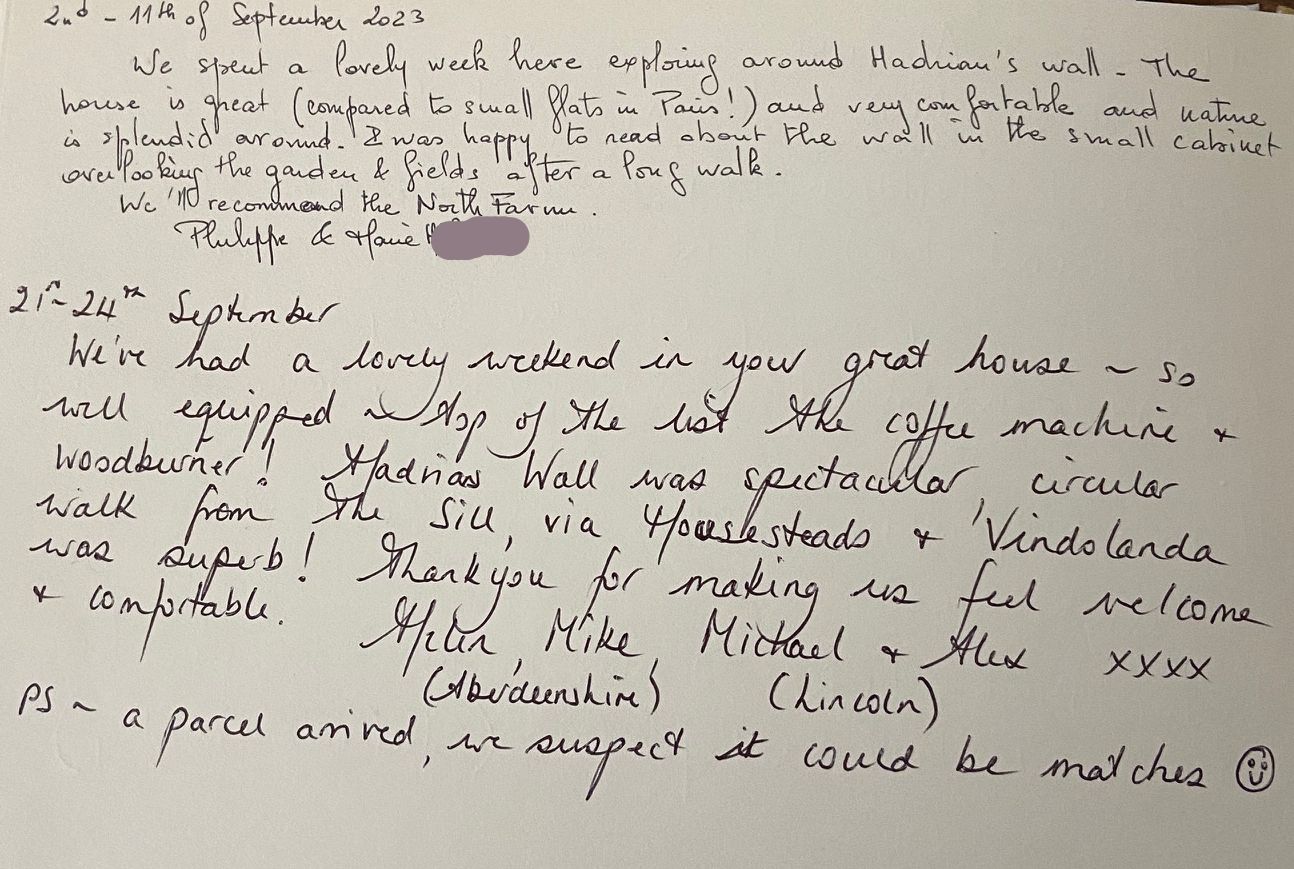 2nd - 11th of September 2023
We spent a lovely week here exploring around Hadrian's wall - The
house is great (compared to small flats in Paris!) and very comfortable and nature
is splendid around. I was happy to read about the wall in the small cabinet
overlooking the garden & fields after a long walk.
We'll recommend the North Farm.
Philippe & Marie
21st - 24th September
We've had a lovely weekend in your great house ~ so
well equipped ~ top of the list the coffee machine +
woodburner! Hadrians Wall was spectacular, circular
walk from The Sill, via Housesteads + Vindolanda
was superb! Thankyou for making us feel welcome
+ comfortable.
Helen, Mike, Michael + Alex xxxx
(Aberdeenshire) (Lincoln)
PS ~ a parcel arrived, we suspect it could be matches ☺